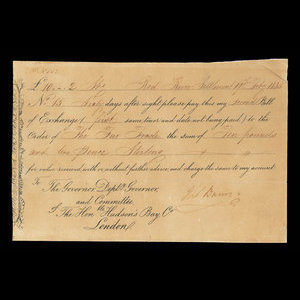 £10 .. 2 Stg Red River Settlement
No. 13. Sixty days after sight please pay this my second Bill
of Exchange (first same tenor and date not being paid) to the
Order of the sum of Ten pounds
and two Pence Sterling
for value received with or without further advice and charge the same to my account
To
The Governor, Depty. Governor,
and Committee
of The Honble. Hudson's Bay Co.
London